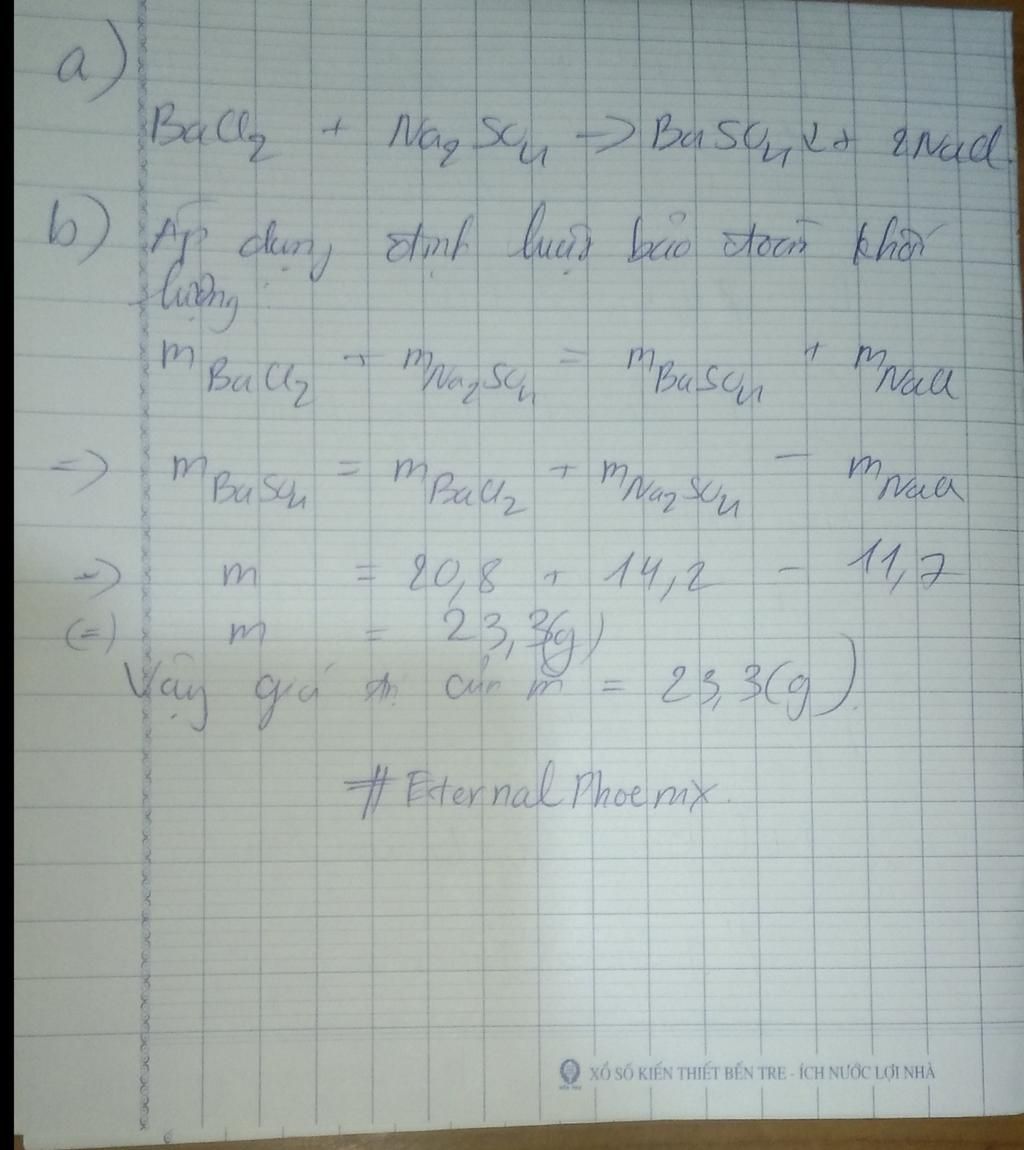 a)
BaCl₂ + Na₂SO₄ → BaSO₄↓ + 2NaCl
b) Áp dụng định luật bảo toàn khối
lượng:
m BaCl₂ + m Na₂SO₄ = m BaSO₄ + m NaCl
=> m BaSO₄ = m BaCl₂ + m Na₂SO₄ - m NaCl
=> m = 20,8 + 14,2 - 11,7
(=) m = 23,3(g)
Vậy giá trị của m = 23,3(g).
#EternalPhoenix.
XỔ SỐ KIẾN THIẾT BẾN TRE - ÍCH NƯỚC LỢI NHÀ